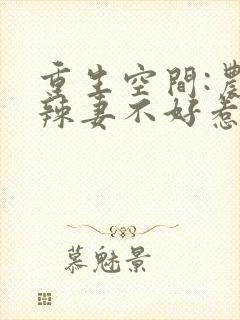 重生空間:農
辣妻不好惹
慕魅景